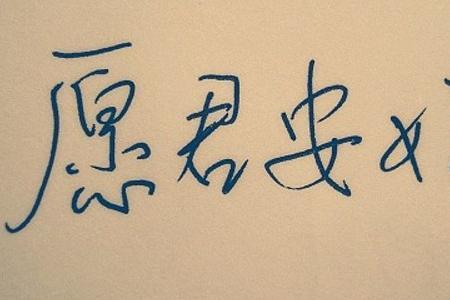 愿君安